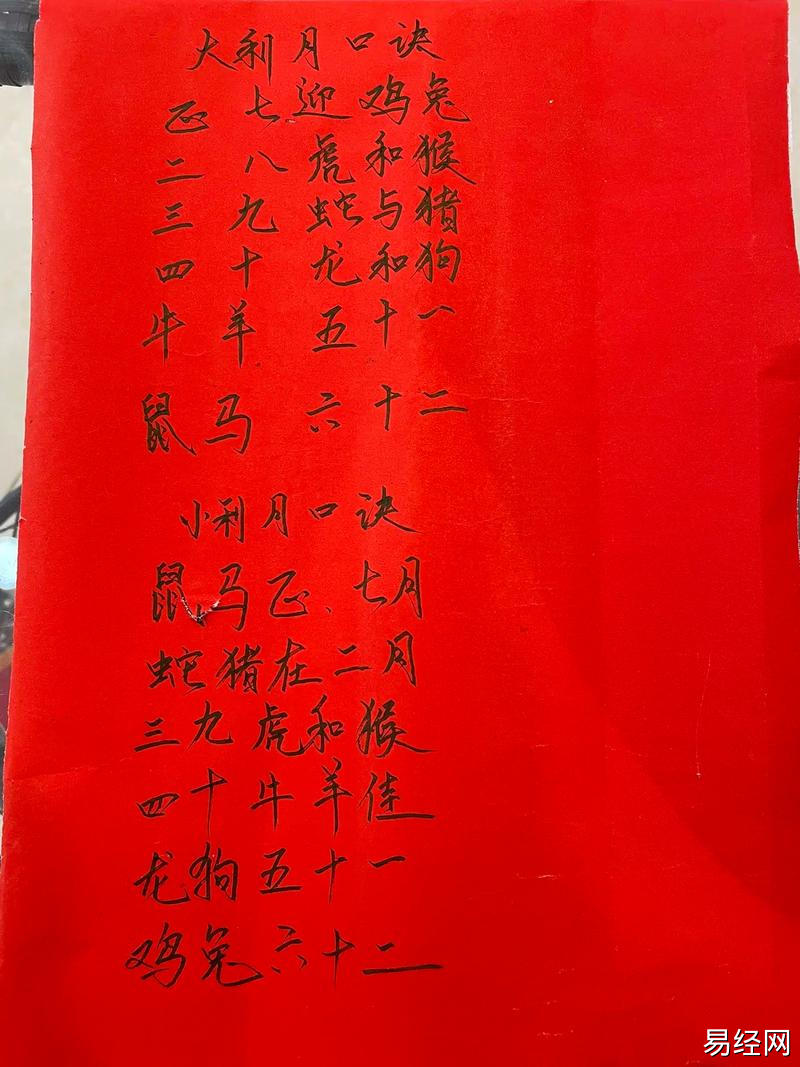 大利月口诀
正七迎鸡兔
二八虎和猴
三九蛇与猪
四十龙和狗
牛羊五十一
鼠马六十二
小利月口诀
鼠马正、七月
蛇猪在二月
三九虎和猴
四十牛羊佳
龙狗五十一
鸡兔六十二
易经网